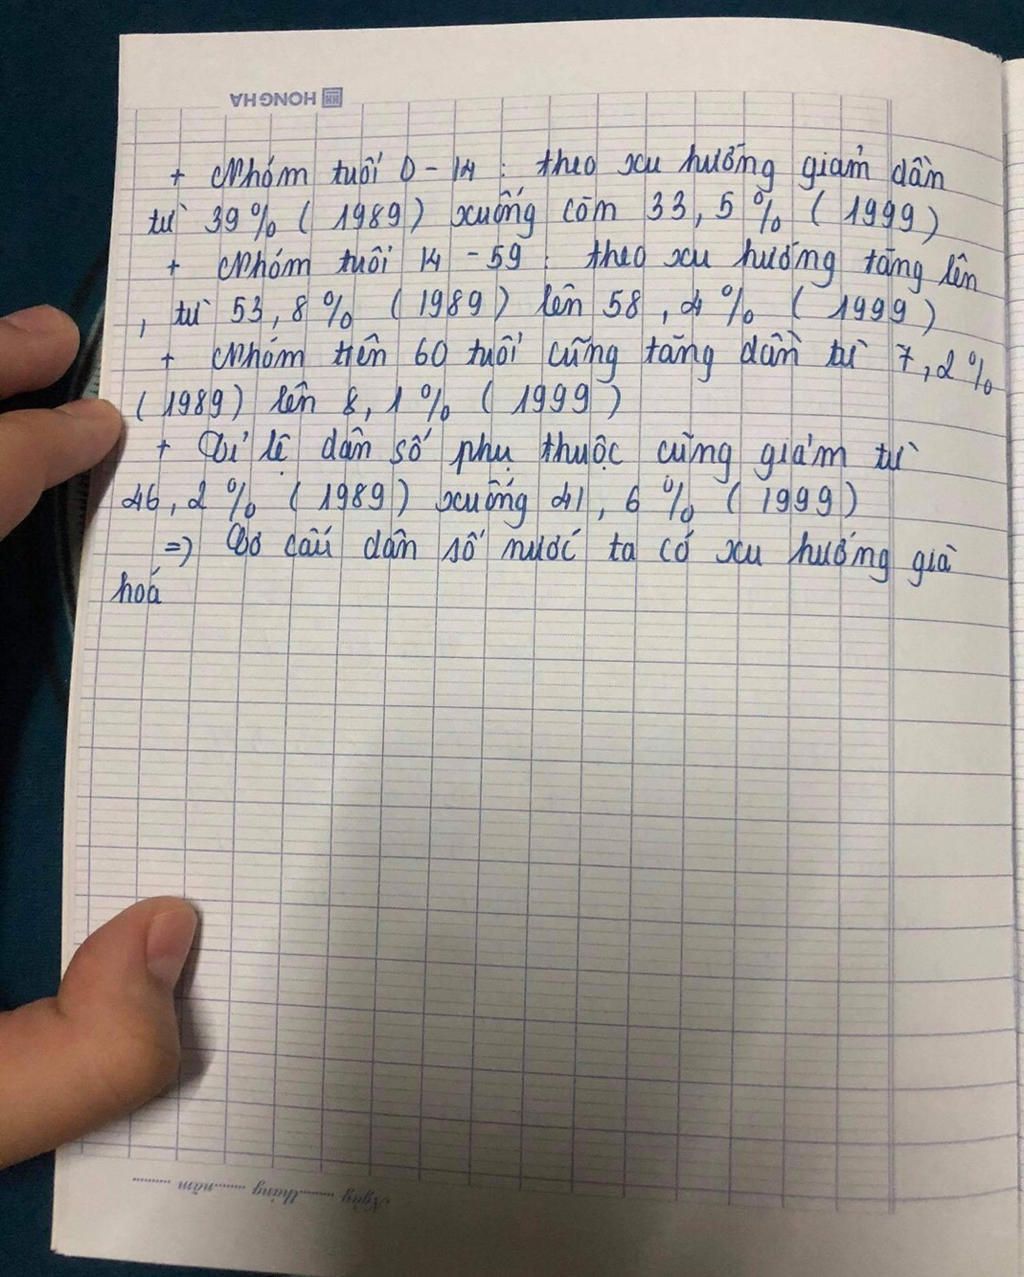 HONG HA
+ Nhóm tuổi 0 - 14 : theo xu hướng giảm dần
từ 39% ( 1989 ) xuống còn 33,5% ( 1999 )
+ Nhóm tuổi 14 - 59 : theo xu hướng tăng lên
, từ 53,8% ( 1989 ) lên 58,4% ( 1999 )
+ Nhóm trên 60 tuổi cũng tăng dần từ 7,2%
( 1989 ) lên 8,1% ( 1999 )
+ Tỉ lệ dân số phụ thuộc cũng giảm từ
46,2% ( 1989 ) xuống 41,6% ( 1999 )
=> Cơ cấu dân số nước ta có xu hướng già
hoá
Ngày ........ tháng ........ năm ........